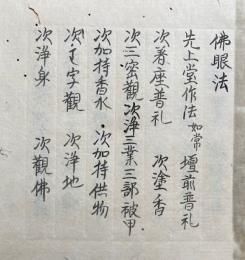 佛眼法
先上堂作法如常 壇前普礼
次着座普礼 次塗香
次三密觀次淨三業三部被甲
次加持香水 次加持供物
次字觀 次淨地
次淨身 次觀佛